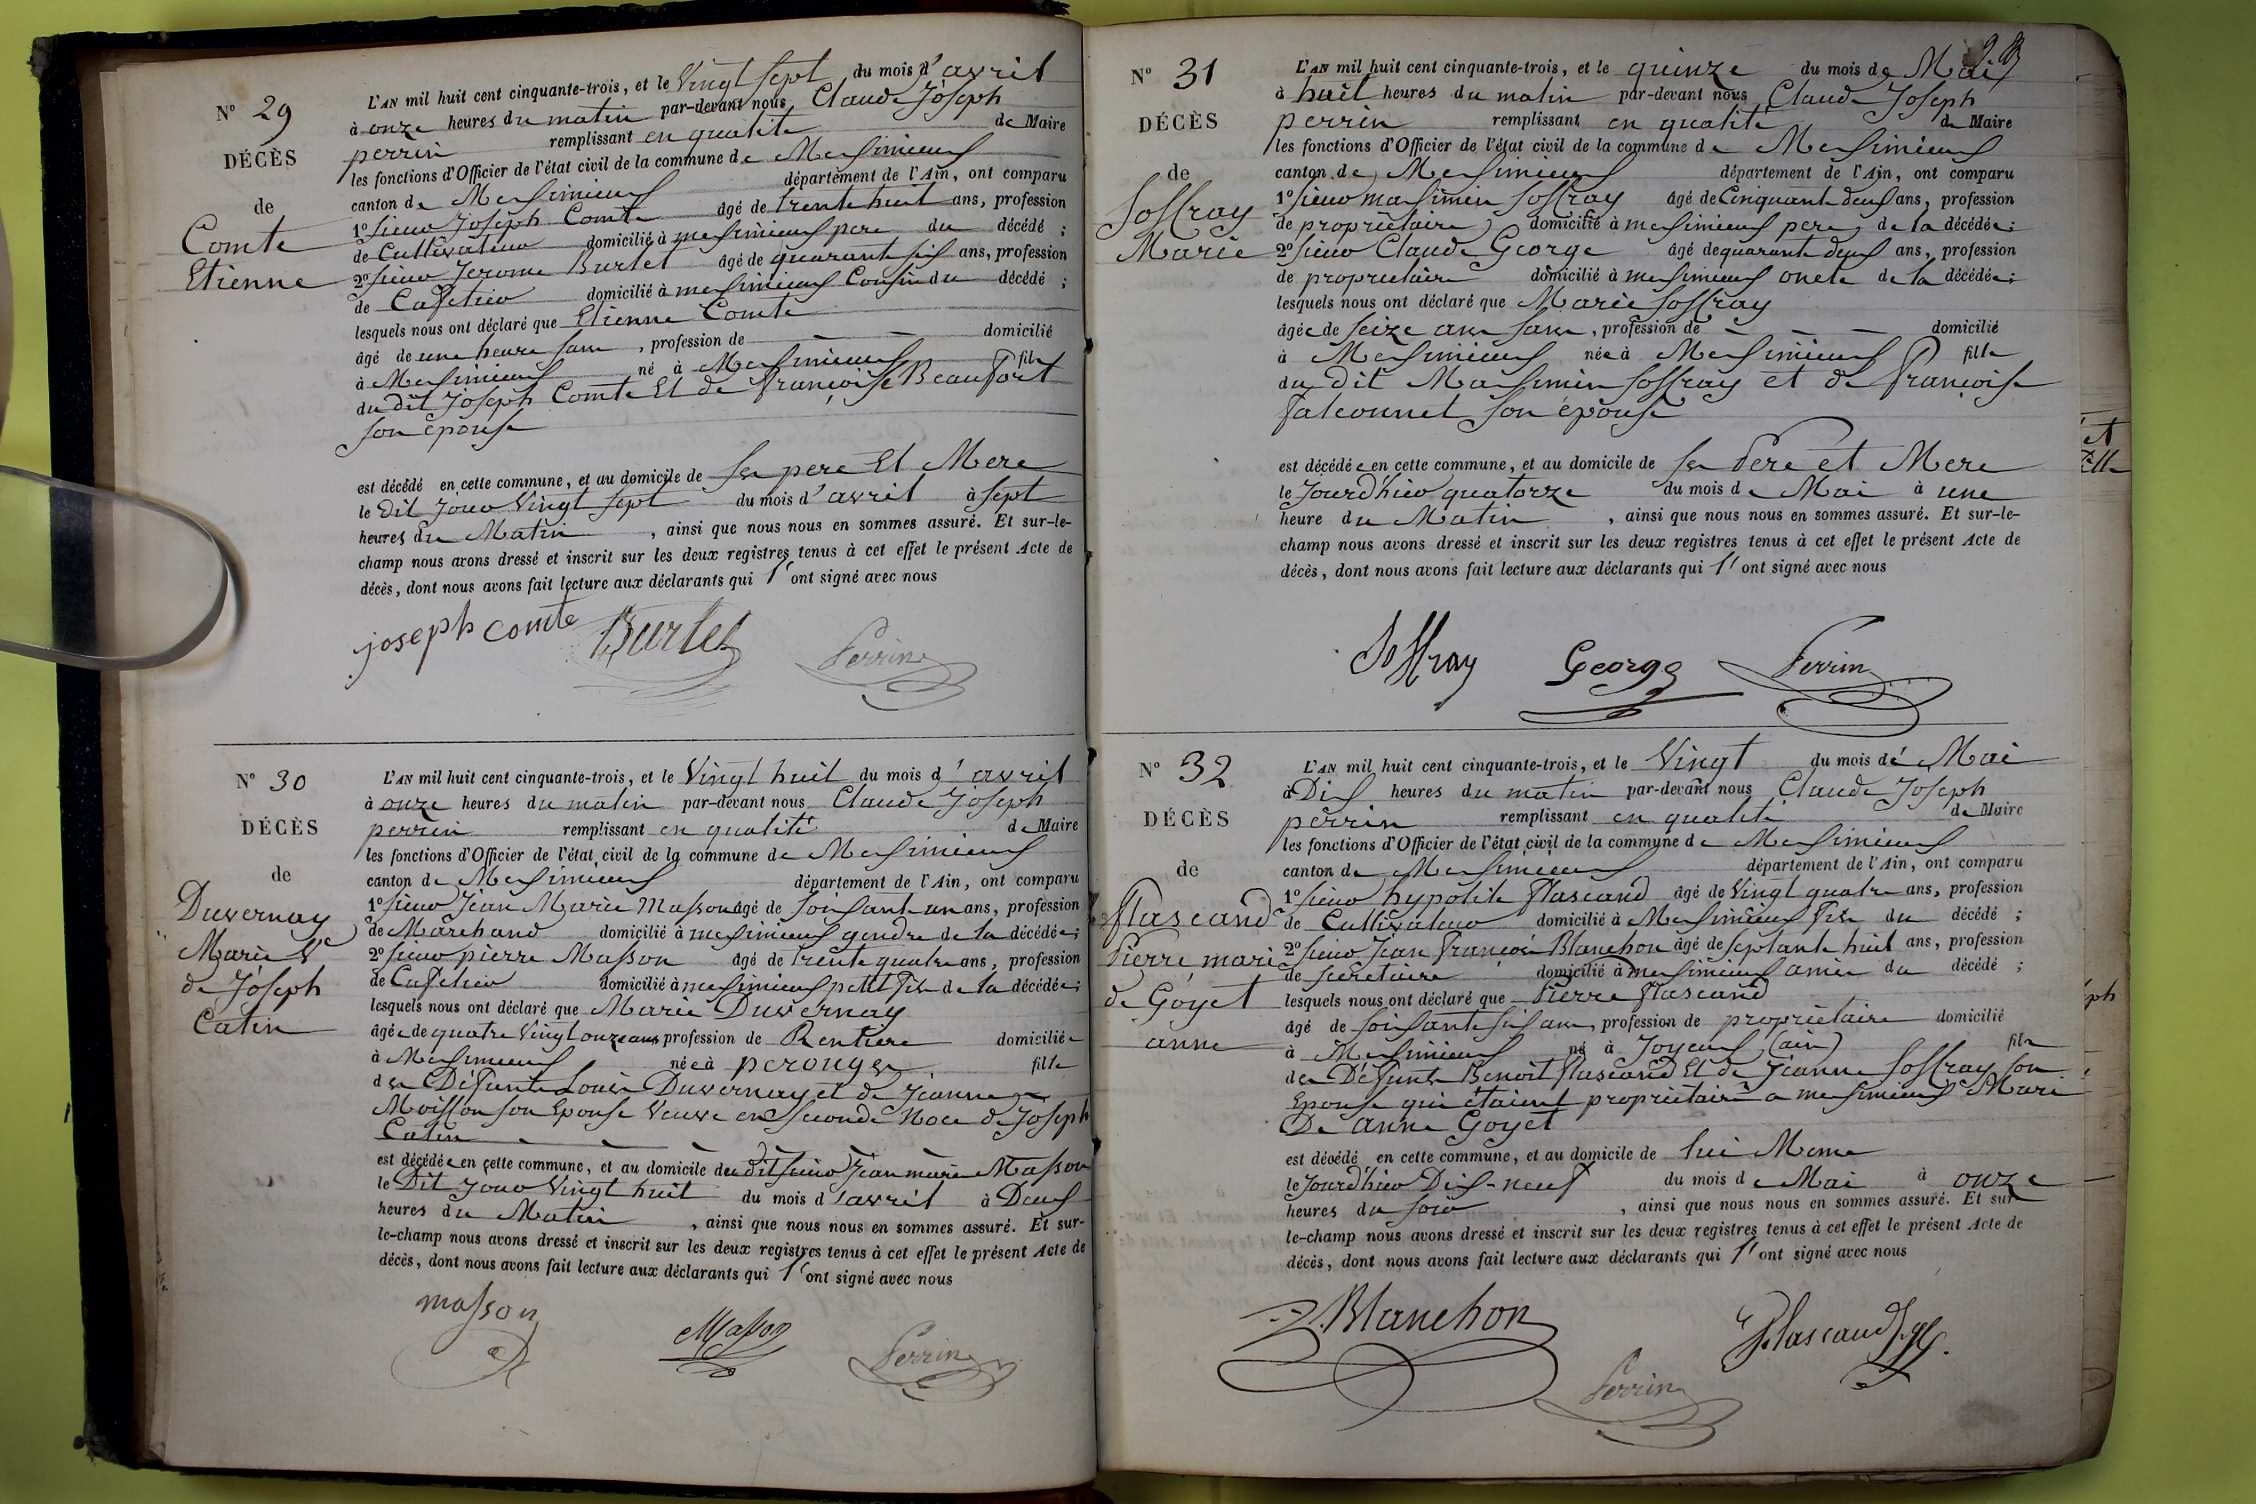 N° 29
DÉCÈS
de
Comte
Etienne
L'AN mil huit cent cinquante-trois, et le Vingt sept du mois d'avril
à onze heures du matin par-devant nous Claude Joseph
perrin remplissant en qualité de Maire
les fonctions d'Officier de l'état civil de la commune de Meximieux
canton de Meximieux département de l'Ain, ont comparu
1° sieur Joseph Comte âgé de trente huit ans, profession
de Cultivateur domicilié à meximieux pere du décédé ;
2° sieur Jerome Burlet âgé de quarante six ans, profession
de Cafetier domicilié à meximieux Cousin du décédé ;
lesquels nous ont déclaré que Etienne Comte
âgé de une heure sans , profession de — — domicilié
à Meximieux né à Meximieux fils
du dit Joseph Comte Et de françoise Beaufort
son épouse
est décédé en cette commune, et au domicile de ses pere Et Mere
le dit jour Vingt sept du mois d'avril à sept
heures du Matin , ainsi que nous nous en sommes assuré. Et sur-le-
champ nous avons dressé et inscrit sur les deux registres tenus à cet effet le présent Acte de
décès, dont nous avons fait lecture aux déclarants qui l'ont signé avec nous
joseph comte Burlet Perrin
N° 30
DÉCÈS
de
Duvernay
Marie Ve
de Joseph
Catin
L'AN mil huit cent cinquante-trois, et le Vingt huit du mois d'avril
à onze heures du matin par-devant nous Claude Joseph
perrin remplissant en qualité de Maire
les fonctions d'Officier de l'état civil de la commune de Meximieux
canton de Meximieux département de l'Ain, ont comparu
1° sieur Jean Marie Masson âgé de soixante un ans, profession
de Marchand domicilié à meximieux gendre de la décédée ;
2° sieur pierre Masson âgé de trente quatre ans, profession
de Cafetier domicilié à meximieux petit fils de la décédée ;
lesquels nous ont déclaré que Marie Duvernay
âgée de quatre Vingt onze ans profession de Rentiere domiciliée
à Meximieux née à perouges fille
des Défunts Louis Duvernay et de Jeanne
Moisson son Epouse Veuve en seconde Noce de Joseph
Catin
est décédée en cette commune, et au domicile du dit sieur Jean marie Masson
le Dit jour Vingt huit du mois d'avril à Deux
heures du Matin , ainsi que nous nous en sommes assuré. Et sur-
le-champ nous avons dressé et inscrit sur les deux registres tenus à cet effet le présent Acte de
décès, dont nous avons fait lecture aux déclarants qui l'ont signé avec nous
masson Masson Perrin
N° 31
DÉCÈS
de
Soffray
Marie
L'AN mil huit cent cinquante-trois, et le quinze du mois de Mai
à huit heures du matin par-devant nous Claude Joseph
perrin remplissant en qualité de Maire
les fonctions d'Officier de l'état civil de la commune de Meximieux
canton de Meximieux département de l'Ain, ont comparu
1° sieur maximin Soffray âgé de Cinquante deux ans, profession
de propriétaire domicilié à meximieux pere de la décédée ;
2° sieur Claude George âgé de quarante deux ans, profession
de propriétaire domicilié à meximieux oncle de la décédée ;
lesquels nous ont déclaré que Marie Soffray
âgée de seize ans sans , profession de — — — domicilié
à Meximieux née à Meximieux fille
du dit Maximin Soffray et de françoise
falconnet son épouse
est décédée en cette commune, et au domicile de ses Pere et Mere
le Jourd'hier quatorze du mois de Mai à une
heure du Matin , ainsi que nous nous en sommes assuré. Et sur-le-
champ nous avons dressé et inscrit sur les deux registres tenus à cet effet le présent Acte de
décès, dont nous avons fait lecture aux déclarants qui l'ont signé avec nous
Soffray George Perrin
N° 32
DÉCÈS
de
Flascand
Pierre mari
de Goyet
anne
L'AN mil huit cent cinquante-trois, et le Vingt du mois de Mai
à Dix heures du matin par-devant nous Claude Joseph
perrin remplissant en qualité de Maire
les fonctions d'Officier de l'état civil de la commune de Meximieux
canton de Meximieux département de l'Ain, ont comparu
1° sieur hypolite Flascand âgé de Vingt quatre ans, profession
de Cultivateur domicilié à Meximieux fils du décédé ;
2° sieur Jean françois Blanchon âgé de septante huit ans, profession
de secretaire domicilié à meximieux amis du décédé ;
lesquels nous ont déclaré que Pierre Flascand
âgé de soixante six ans, profession de propriétaire domicilié
à Meximieux né à Joyeux (ain) fils
des Défunts Benoit Flascand Et de Jeanne Soffray son
Epouse qui étaient propriétaires a meximieux Mari
De anne Goyet
est décédé en cette commune, et au domicile de lui Meme
le Jourd'hier Dix-neuf du mois de Mai à onze
heures du soir , ainsi que nous nous en sommes assuré. Et sur
le-champ nous avons dressé et inscrit sur les deux registres tenus à cet effet le présent Acte de
décès, dont nous avons fait lecture aux déclarants qui l'ont signé avec nous
Blanchon Flascand
Perrin